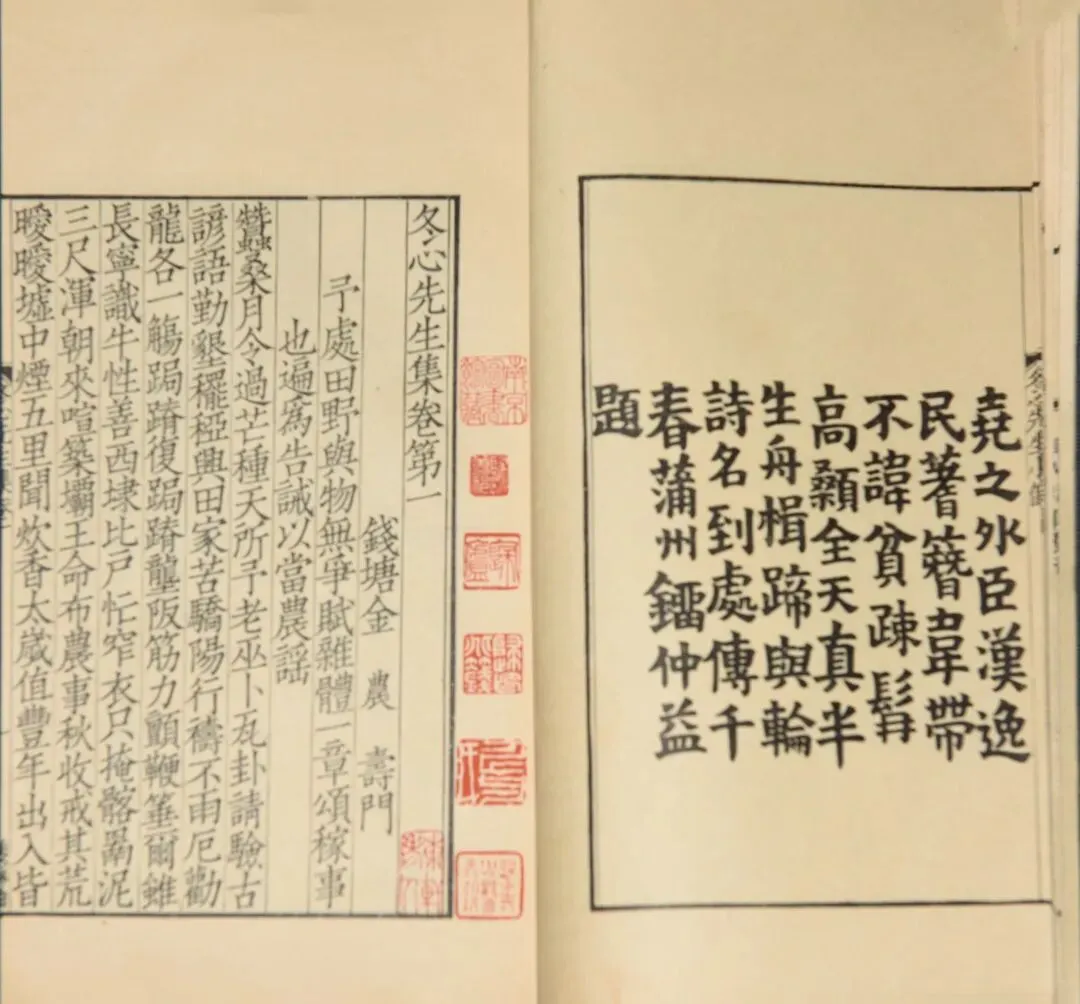 堯之外臣漢逸
民蓍簪韋帶
不諱貧疎髯
高顙全天真半
生舟楫蹄與輪
詩名到處傳千
春蒲州鐂仲益
題
冬心先生集卷第一
錢塘金 農 壽門
予處田野與物無爭賦雜體一章頌稼事
也遍爲告誡以當農謡
蠶桑月令過芒種天所予老巫卜瓦卦請驗古
諺語勤墾䆉稏興田家苦驕陽行禱不雨厄勸
龍各一觴跼蹐復跼蹐壟阪筋力顫鞭箠爾雖
長寧識牛性善西埭比戶忙窄衣只掩髂剮泥
三尺渾朝來喧築壩王命布農事秋收戒其荒
曖曖墟中煙五里聞炊香太歲值豐年出入皆